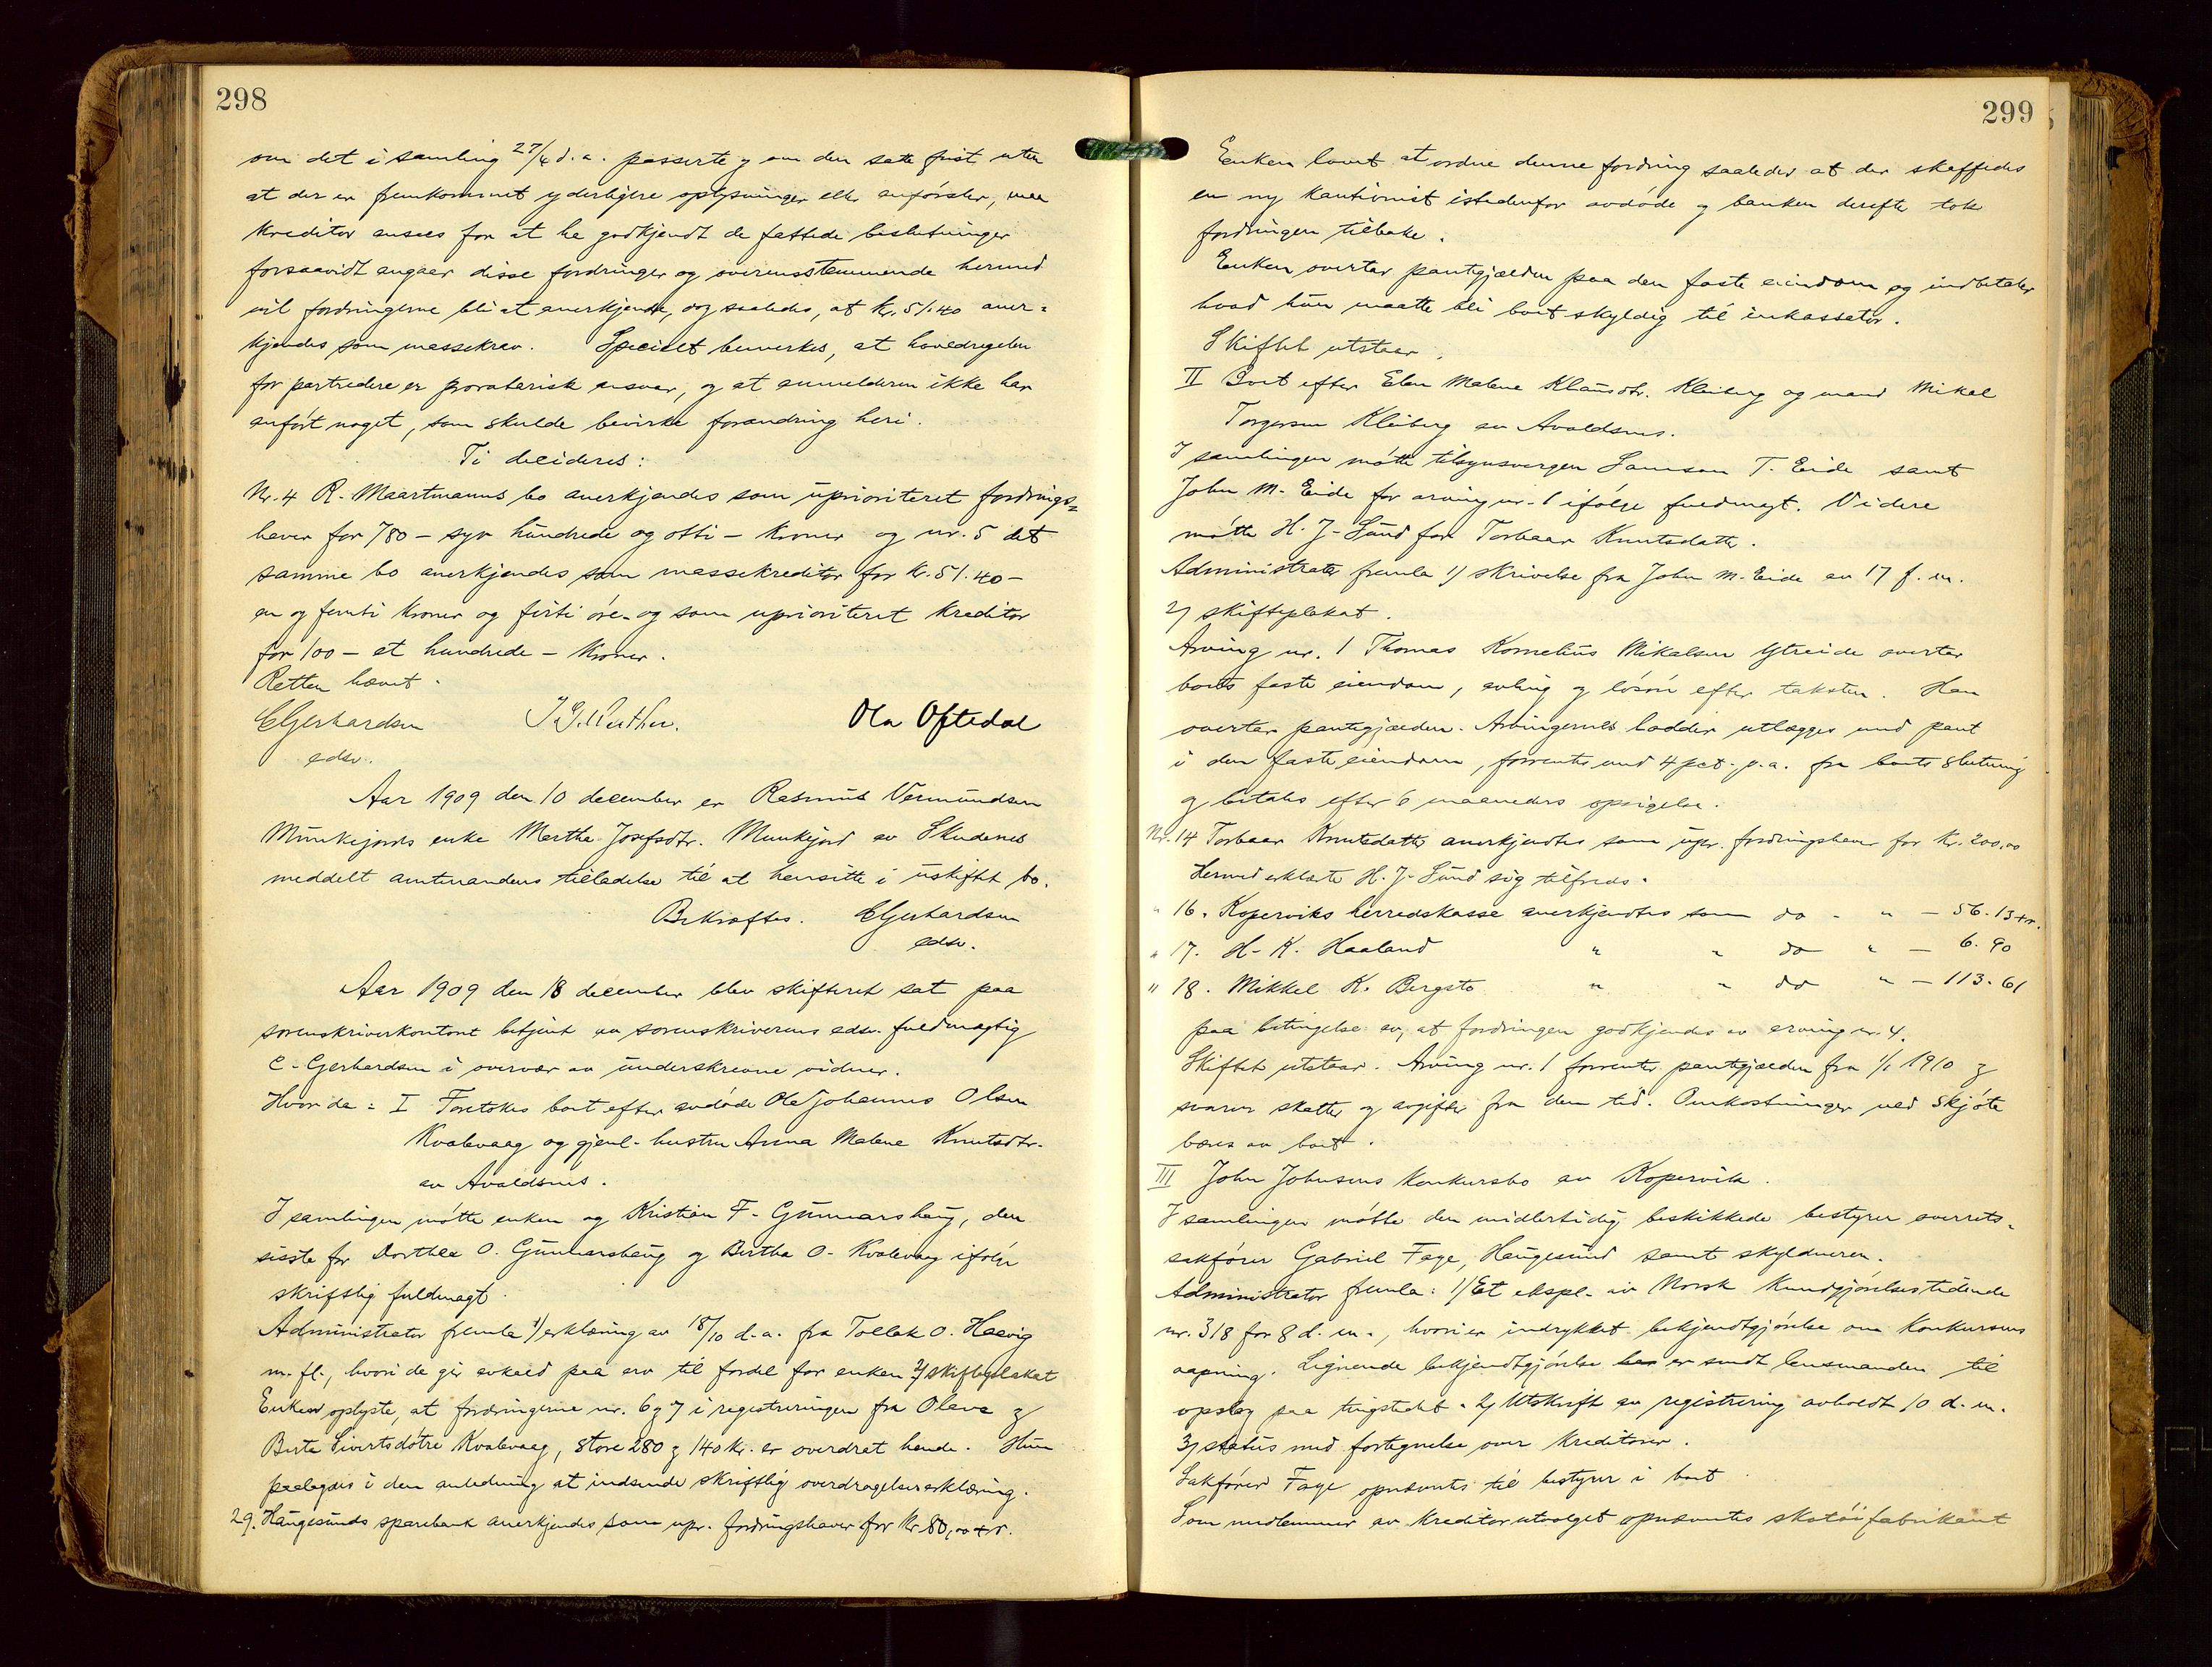 298
om det i samling 27/4 d.a. passerte og om den satte frist uten
at der er fremkommet yderligere oplysninger eller anførsler, maa
kreditor ansees for at ha godkjendt de fattede beslutninger
forsaavidt angaar disse fordringer og overensstemmende hermed
vil fordringerne bli at anerkjende, og saaledes, at kr. 51.40 aner-
kjendes som massekrav. Specielt bemerkes, at hovedregelen
for partredere er proratarisk ansvar, og at anmelderen ikke har
anført noget, som skulde bevirke forandring heri.
Ti decideres:
Nr. 4 R. Maartmanns bo anerkjendes som uprioriteret fordrings-
haver for 780 – syv hundrede og otti – kroner og nr. 5 det
samme bo anerkjendes som massekreditor for kr. 51.40 –
en og femti kroner og firti øre – og som uprioriteret kreditor
for 100 – et hundrede – kroner.
Retten hævet.
EGerhardsen Ola Oftedal
edsv.
Aar 1909 den 10 december er Rasmus Vermundsen
Munkejords enke Martha Josefsdtr. Munkejord av Skudenes
meddelt amtmandens tilladelse til at hensitte i uskiftet bo.
Bekræftes. EGerhardsen
edsv.
Aar 1909 den 18 december blev skifteret sat paa
sorenskriverkontoret betjent av sorenskriverens edsv. fuldmægtig
E. Gerhardsen i overvær av underskrevne vidner.
Hvor da: I Foretokes boet efter avdøde Ole Johannes Olsen
Kvalevaag og gjenl. hustru Anna Malene Knutsdtr.
av Avaldsnes.
I samlingen møtte enken og Kristian F. Gunnarshaug, den
sisste for Dorthea O. Gunnarshaug og Bertha O. Kvalevaag ifølge
skriftlig fuldmagt.
Administrator fremla 1/ erklæring av 18/10 d.a. fra Tollak O. Hævig
m. fl., hvori de gir avkald paa arv til fordel for enken 2/ skifteplakat
Enken oplyste, at fordringerne nr. 6 og 7 i registreringen fra Olava og
Berta Sivertsdøtre Kvalevaag, store 280 og 140 kr. er overdrat hende. Hun
paalegges i den anledning at indsende skriftlig overdragelseserklæring.
29. Haugesunds sparebank anerkjendes som upr. fordringshaver for kr. 80,00 + r.
299
Enken lovet at ordne denne fordring saaledes at der skaffedes
en ny kautionist istedenfor avdøde og banken derefter tok
fordringen tilbake.
Enken overtar pantegjælden paa den faste eiendom og indbetaler
hvad hun maatte bli boet skyldig til inkassator.
Skiftet utstaar.
II Boet efter Elen Malene Klausdtr. Kleiberg og mand Mikal
Torgersen Kleiberg av Avaldsnes.
I samlingen møtte tilsynsvergen Samson T. Eide samt
John M. Eide for arving nr. 1 ifølge fuldmagt. Videre
møtte H. J. Sund for Torbaar Knutsdatter.
Administrator fremla 1/ skrivelse fra John M. Eide av 17 f. m.
2/ skifteplakat.
Arving nr. 1 Thomas Kornelius Mikalsen Ytreide overtar
boets faste eiendom, avling og løsøre efter taksten. Han
overtar pantegjælden. Arvingernes lodder utlægges med pant
i den faste eiendom, forrentes med 4 pct. p.a. fra boets slutning
og betales efter 6 maaneders opsigelse.
Nr. 14 Torbaar Knutsdatter anerkjendtes som upr. fordringshaver for kr. 200,00
Hermed erklærte H. J. Sund sig tilfreds.
" 16. Koperviks herredskasse anerkjendtes som do " " – 56.13 + r.
" 17. H. K. Haaland " " do " – 6.90
" 18. Mikkel K. Bergstø " " do " – 113.61
paa betingelse av, at fordringen godkjendes av arving nr. 4.
Skiftet utstaar. Arving nr. 1 forrenter pantegjælden fra 1/1 1910 og
svarer skatter og avgifter fra den tid. Omkostninger ved skjøte
bæres av boet.
III John Johnsens konkursbo av Kopervik.
I samlingen møtte den midlertidig beskikkede bestyrer overrets-
sakfører Gabriel Fage, Haugesund samt skyldneren.
Administrator fremla: 1/ Et ekspl. av Norsk Kundgjørelsestidende
nr. 318 for 8 d. m., hvori er indrykket bekjendtgjørelse om konkursens
aapning. Lignende bekjendtgjørelse er sendt lensmanden til
opslag paa tingstedet. 2/ Utskrift av registrering avholdt 10 d. m.
3/ status med fortegnelse over kreditorer.
Sakfører Fage opnævntes til bestyrer i boet.
Som medlemmer av kreditorutvalget opnævntes skotøifabrikant